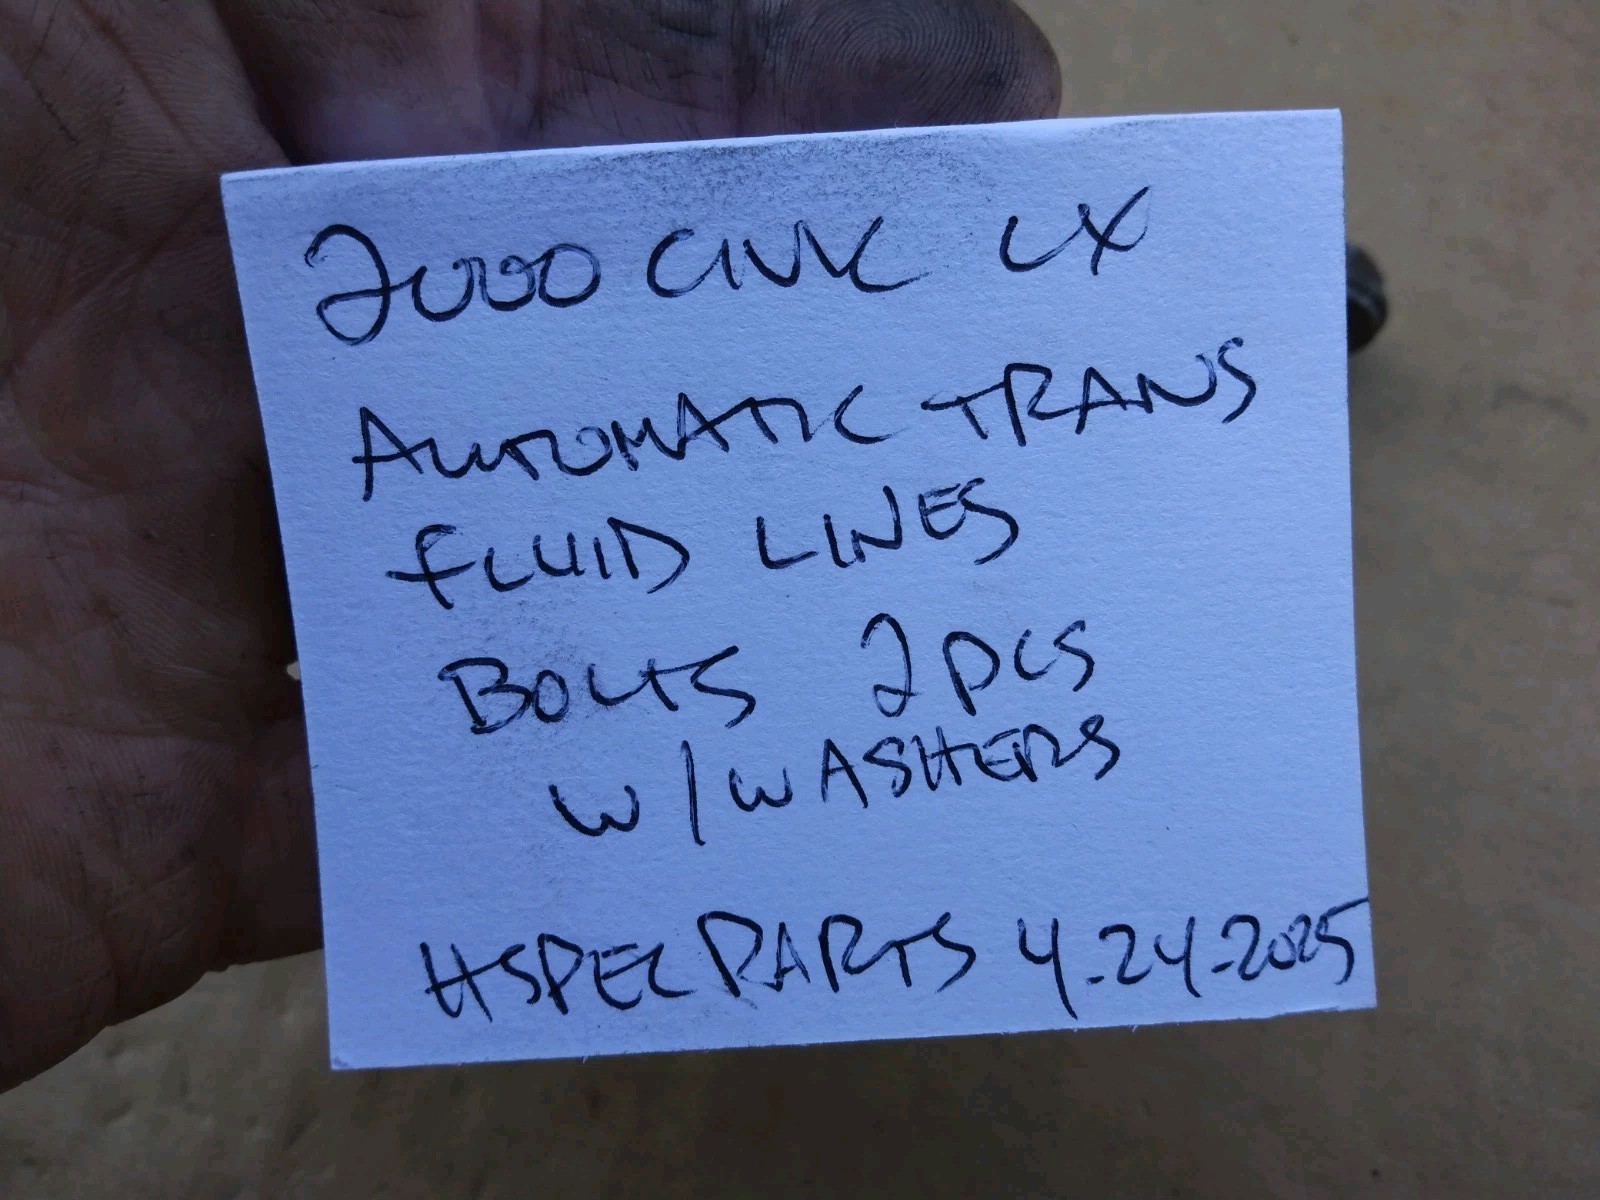 2000 CIVIC LX
AUTOMATIC TRANS
FLUID LINES
BOLTS 2 PCS
W/WASHERS
HSPEC PARTS 4-24-2025